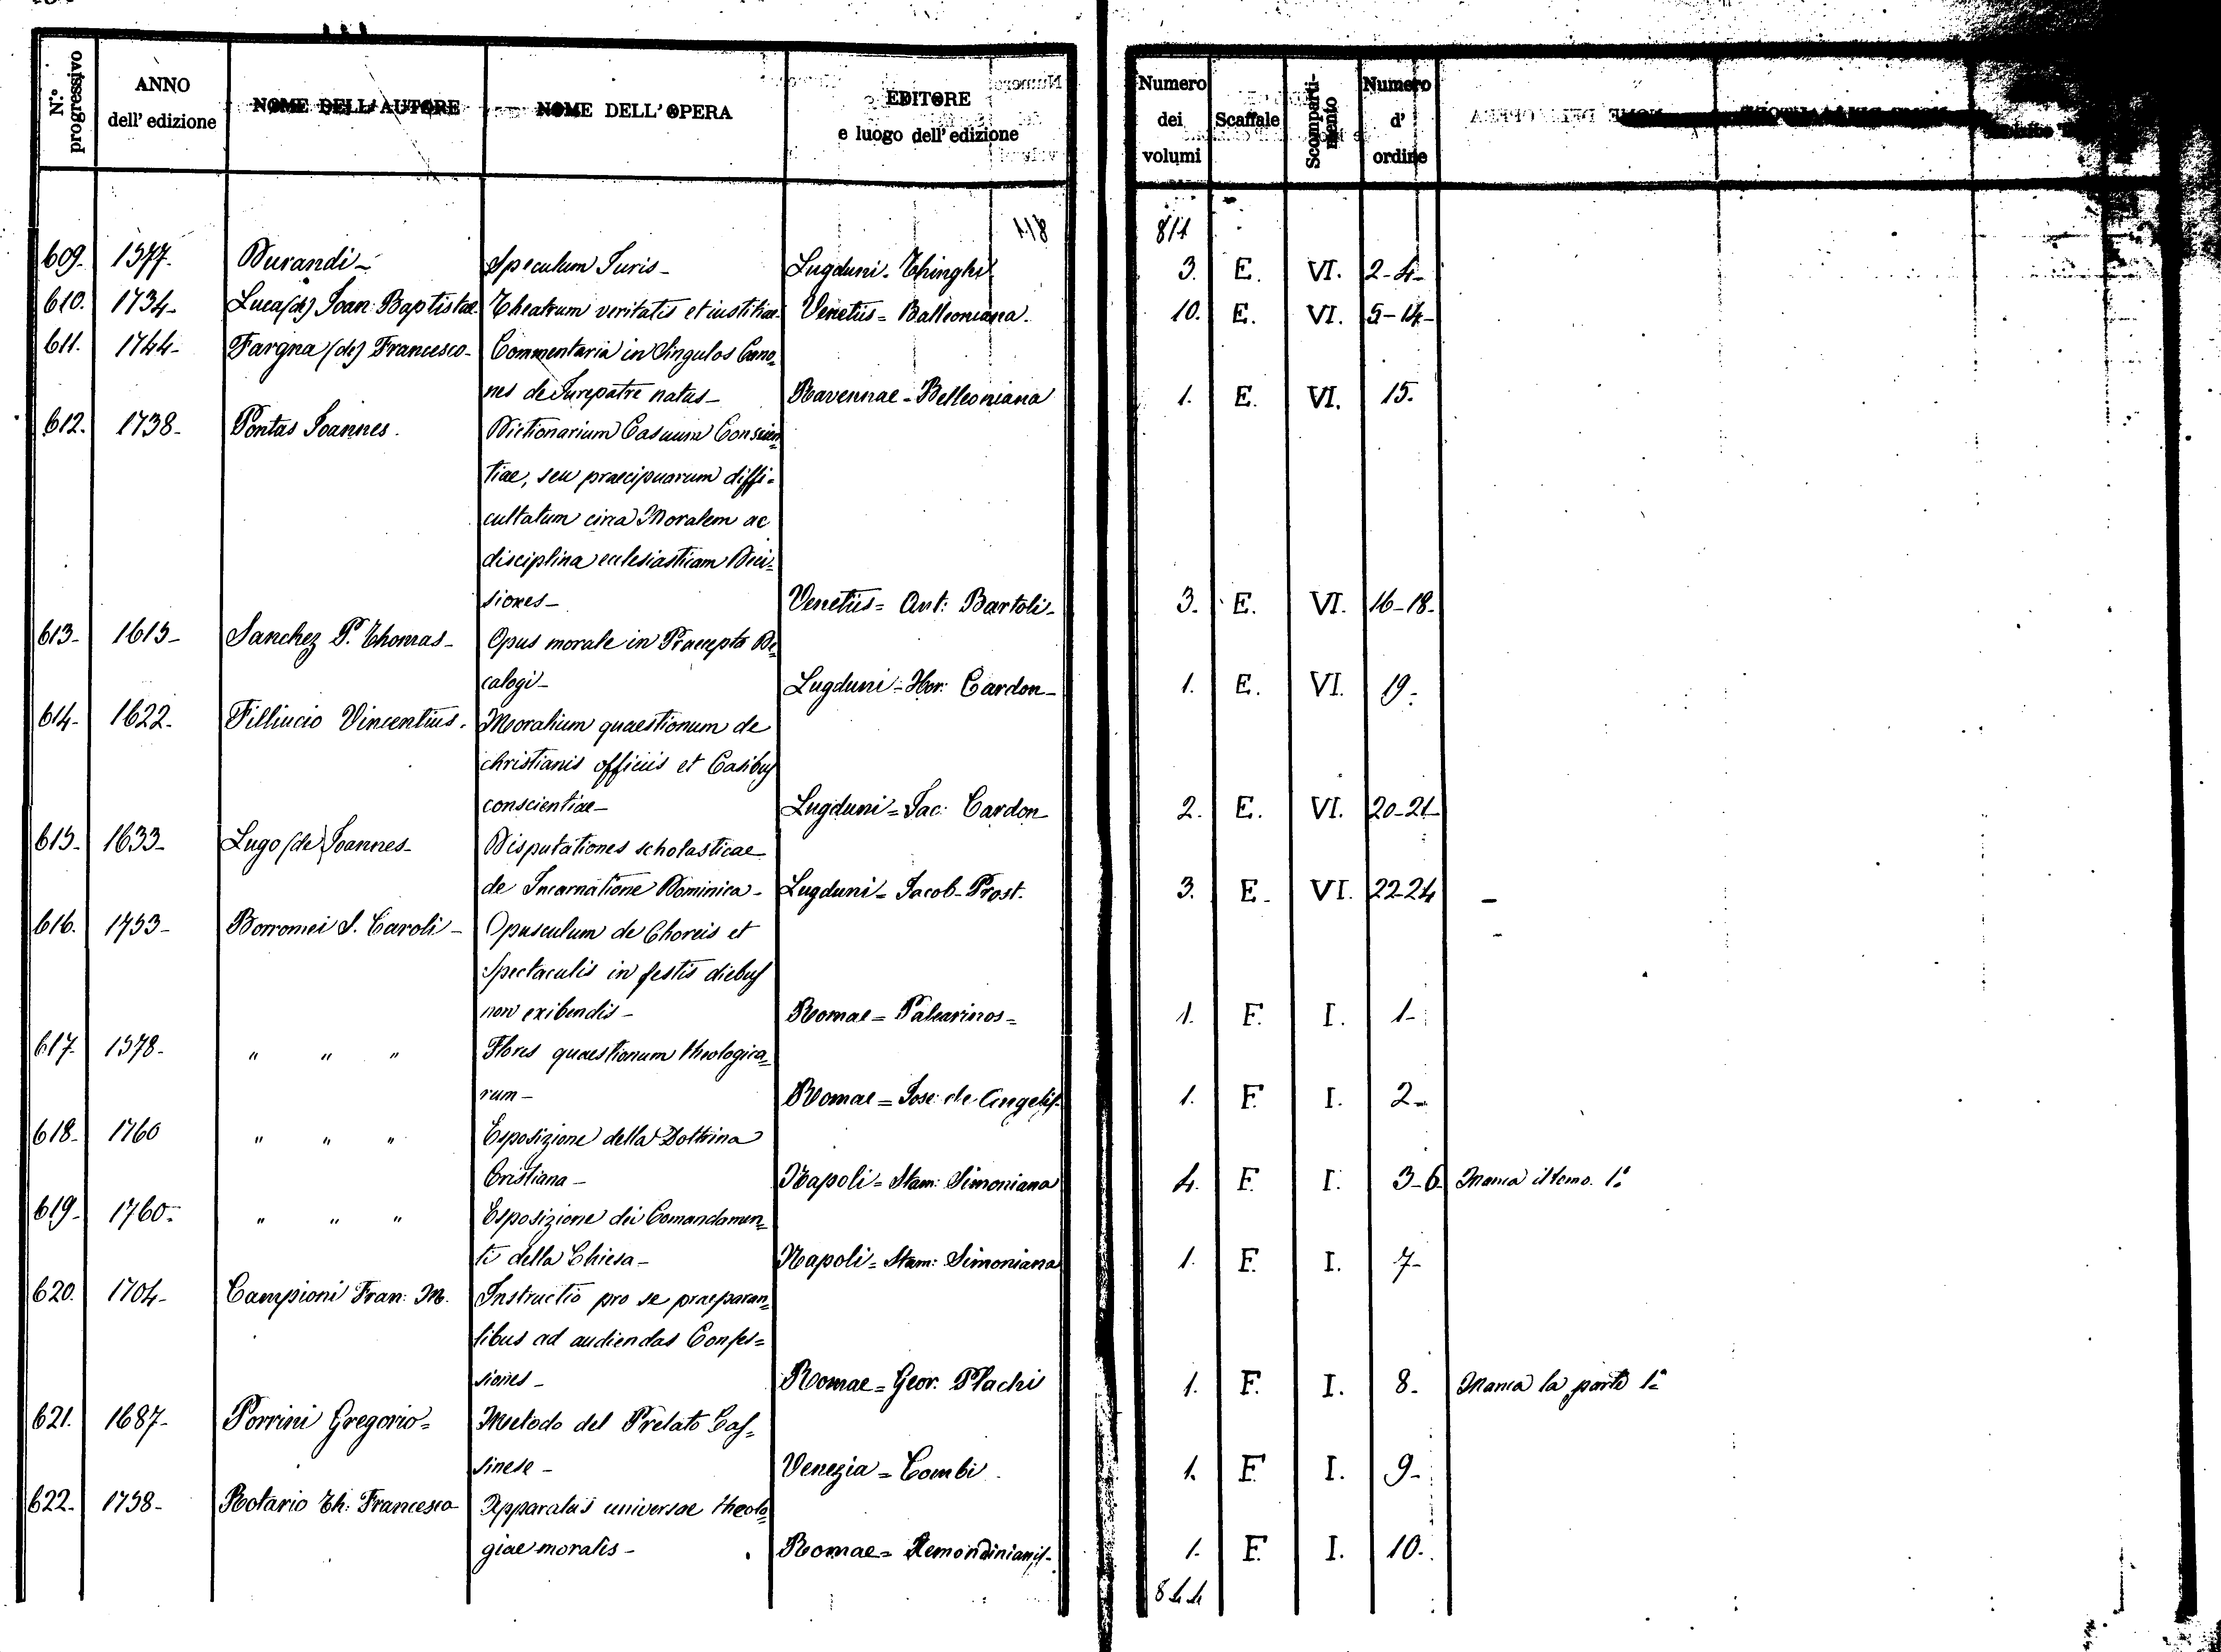 N.° progressivo | ANNO dell' edizione | NOME DELL' AUTORE | NOME DELL' OPERA | EDITORE e luogo dell' edizione | Numero dei volumi | Scaffale | Scompartimento | Numero d' ordine
811
609. 1577. Durandi - Speculum Juris - Lugduni. Thinghi 3. E. VI. 2-4-
610. 1734- Luca (de) Joan: Baptistae Theatrum veritatis et iustitiae- Venetiis = Balleoniana. 10. E. VI. 5-14-
611. 1744- Fargna (de) Francesco- Commentaria in Singulos Cano=
nes de Jurepatre natus- Ravennae - Belleoniana 1. E. VI. 15.
612. 1738- Pontas Joannes. Dictionarium Casuum Conscien=
tiae, seu praecipuarum diffi=
cultatum circa Moralem ac
disciplina ecclesiasticam Deci=
siones- Venetiis = Ant: Bartoli- 3. E. VI. 16-18-
613- 1615- Sanchez P. Thomas- Opus morale in Praecepta De=
calogi- Lugduni - Hor: Cardon- 1. E. VI. 19.
614- 1622- Filliucio Vincentius. Moralium quaestionum de
christianis officiis et Casibus
conscientiae- Lugduni = Jac: Cardon 2. E. VI. 20-21-
615- 1633- Lugo (de) Joannes- Disputationes scholasticae
de Incarnatione Dominica- Lugduni = Jacob- Prost. 3. E- VI. 22-24
616. 1753- Borromei S. Caroli- Opusculum de Choreis et
Spectaculis in festis diebus
non exibendis- Romae = Palearinos= 1. F. I. 1-
617. 1578- " " " Flores quaestionum theologica=
rum- Romae = Jose: de Angelis- 1. F. I. 2-
618- 1760 " " " Esposizione della Dottrina
Cristiana- Napoli = Stam: Simoniana 4. F. I. 3-6 Manca il tomo. 1°
619- 1760- " " " Esposizione dei Comandamen=
ti della Chiesa- Napoli = Stam: Simoniana 1. F. I. 7-
620. 1704- Campioni Fran: M. Instructio pro se praeparan=
tibus ad audiendas Confes=
siones- Romae = Geor: Plachi 1. F. I. 8- Manca la parte 1a
621. 1687- Porrini Gregorio= Metodo del Prelato Cas=
sinese- Venezia = Combi. 1. F. I. 9-
622- 1758- Rotario Th: Francesco- Apparatus universae theolo=
giae moralis- Romae = Remondinianis- 1. F. I. 10.
844